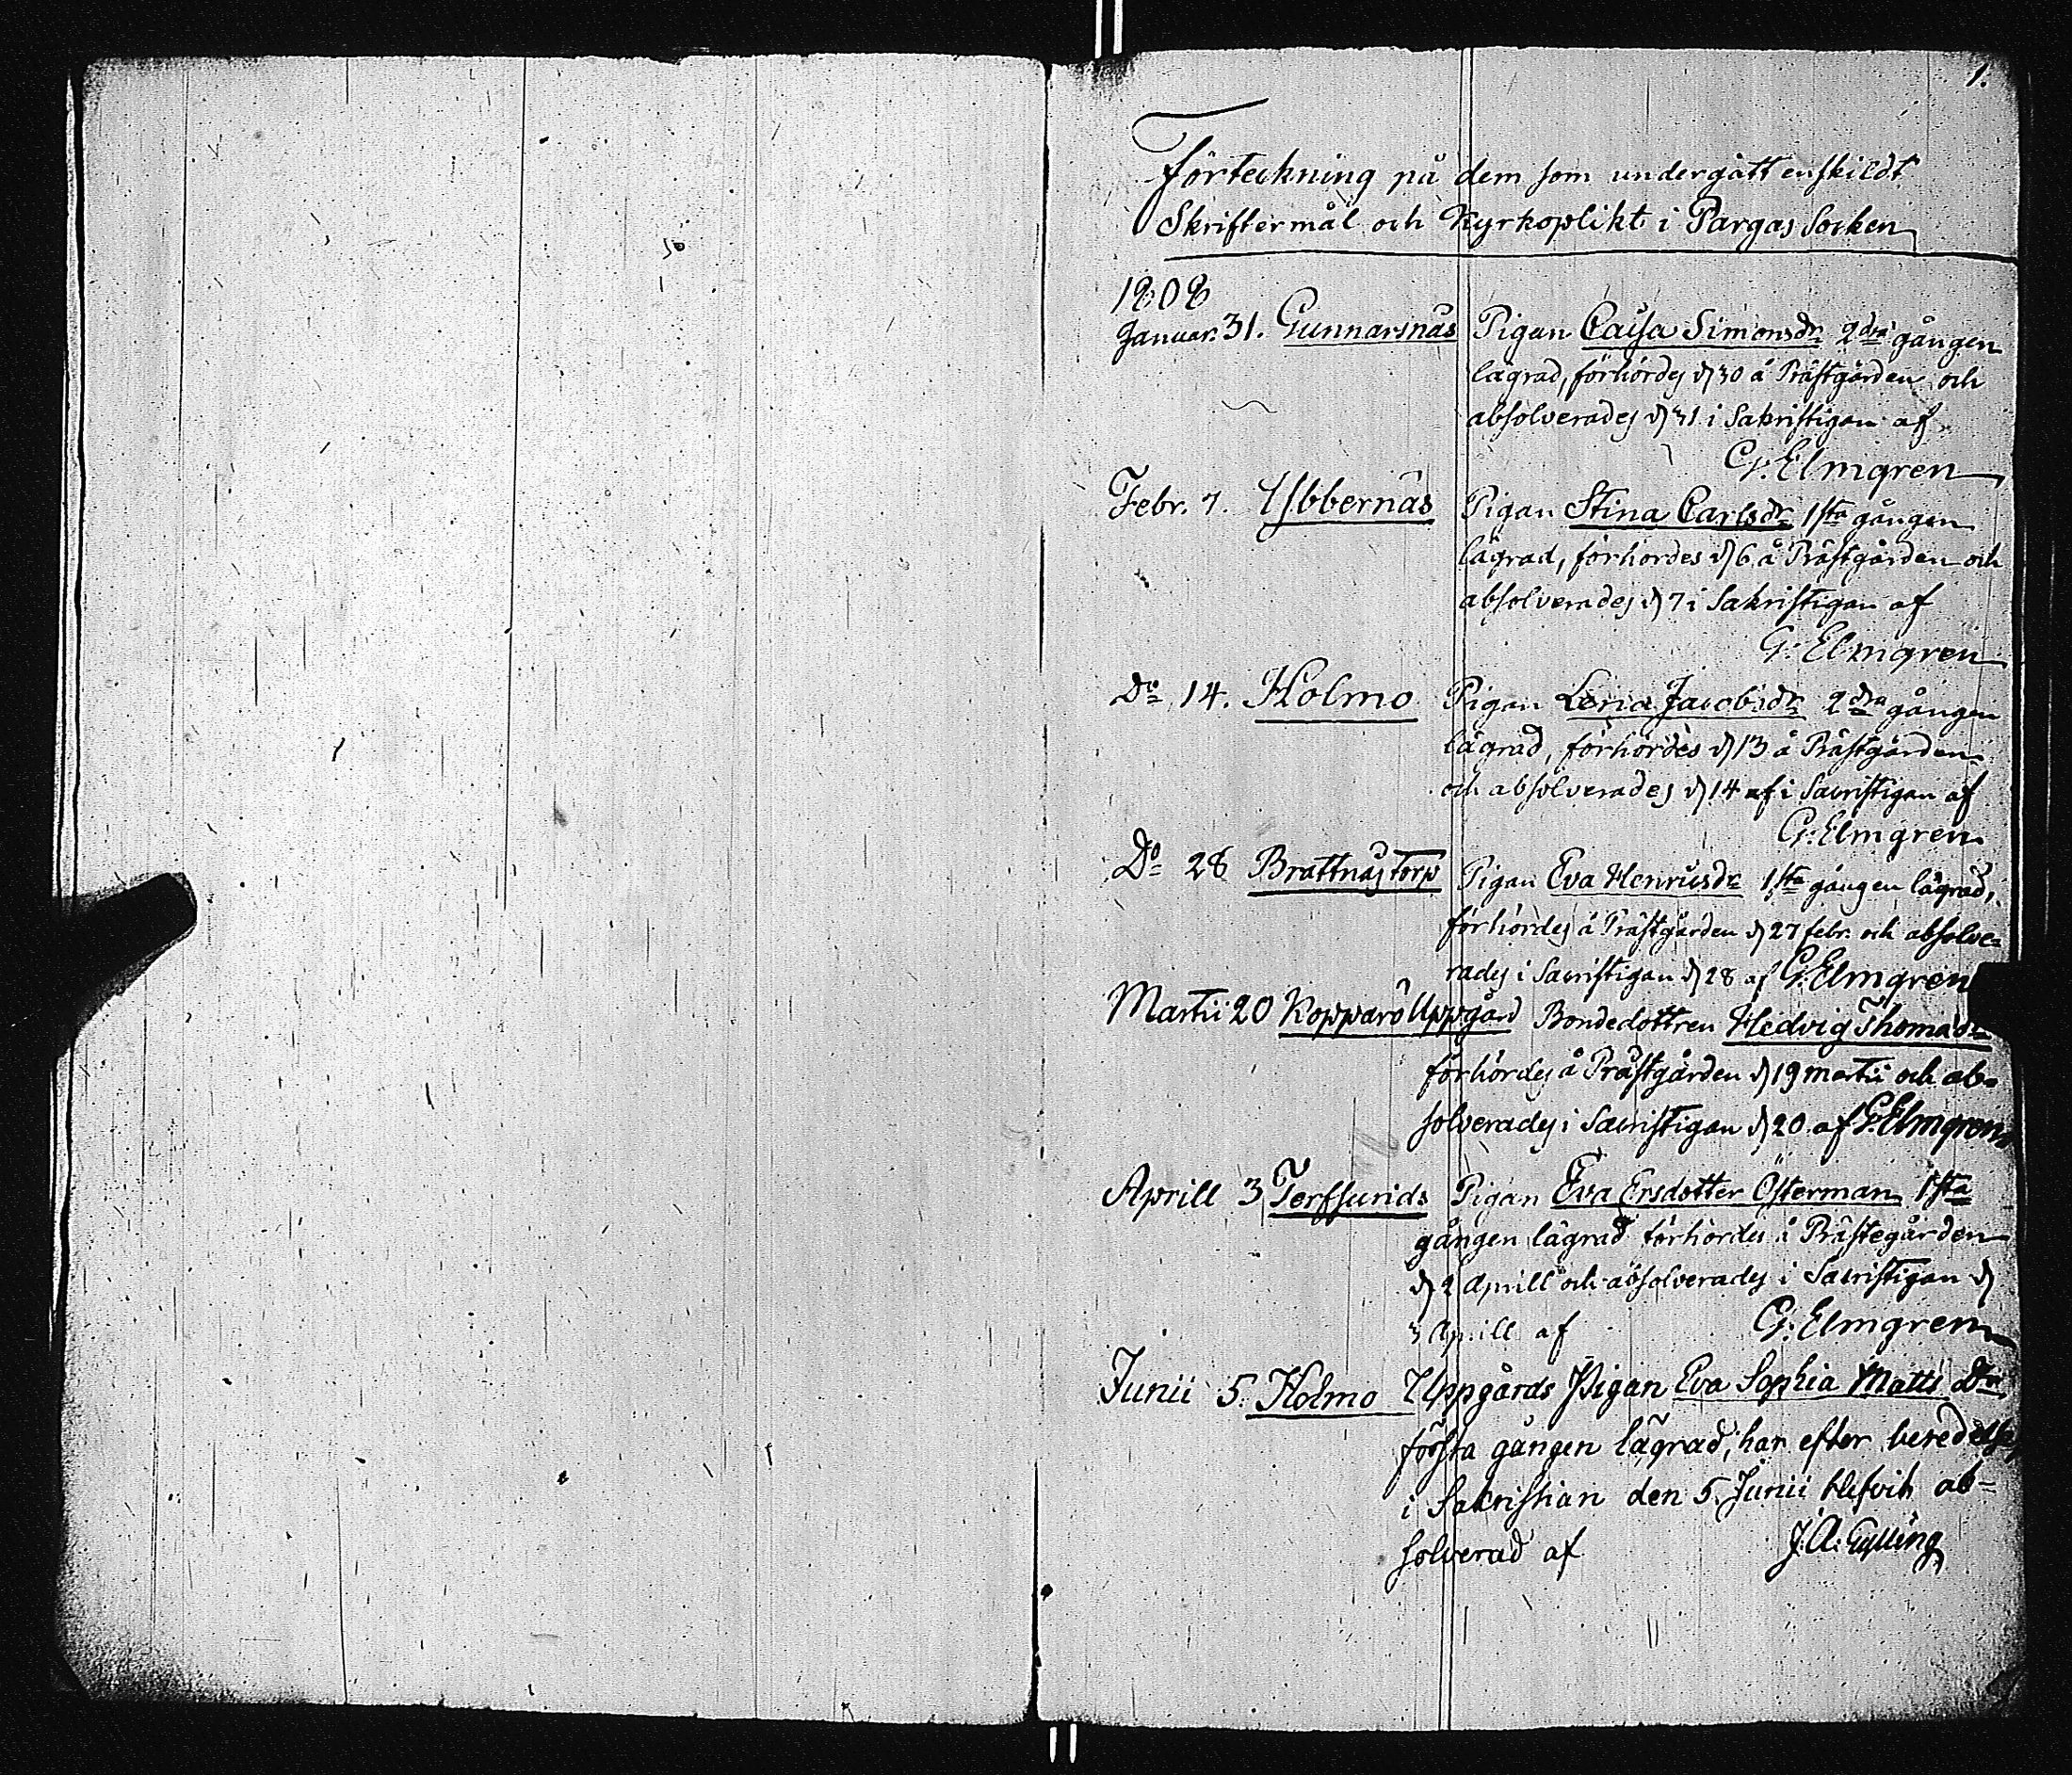 1.
Förteckning på dem som undergått enskildt
Skriftermål och Kyrkoplikt i Pargas Socken
1808
Januar. 31. Gunnarsnäs Pigan Caisa Simonsdr 2dra gången
lägrad, förhördes d 30 å Prästgården och
absolverades d 31 i Sakristigan af
G. Elmgren
Febr. 7. Ybbernäs Pigan Stina Carlsdr 1sta gången
lägrad, förhördes d 6 å Prästgården och
absolverades d 7 i Sakristigan af
G. Elmgren
Do 14. Holmo Pigan Lena Jacobsdr 2dra gången
lägrad, förhördes d 13 å Prästgården
och absolverades d 14 af i Sacristigan af
G. Elmgren
Do 28 Brattnästorp Pigan Eva Henricsdr 1sta gången lägrad,
förhördes å Prästgården d 27 febr. och absolve-
rades i Sacristigan d 28 af G. Elmgren
Martii 20 Kopparö Uppgård Bondedottren Hedvig Thomasdr
förhördes å Prästgården d 19 martii och ab-
solverades i Sacristigan d 20 af G. Elmgren
Aprill 3 Terfsunds Pigan Eva Ersdotter Österman 1sta
gången lägrad förhördes å Prästegården
d 2 Aprill och absolverades i Sacristigan d
3 Aprill af G. Elmgren
Junii 5. Holmo Uppgårds Pigan Eva Sophia Matts Dr
första gången lägrad, har efter beredelse,
i Sakristian den 5. Junii blifvit ab-
solverad af J. A. Gylling